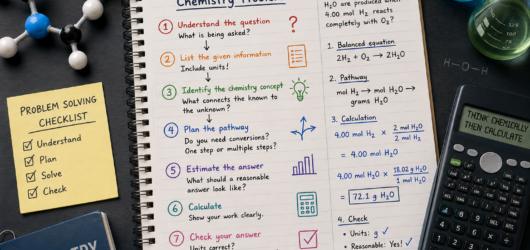 Chemistry Problem
1 Understand the question
What is being asked?
2 List the given information
Include units!
3 Identify the chemistry concept
What connects the known to
the unknown?
4 Plan the pathway
Do you need conversions?
One step or multiple steps?
5 Estimate the answer
What should a reasonable
answer look like?
6 Calculate
Show your work clearly.
7 Check your answer
Units correct?
?
H₂O are produced when
4.00 mol H₂ reacts
completely with O₂?
1. Balanced equation
2H₂ + O₂ → 2H₂O
2. Pathway
mol H₂ → mol H₂O →
grams H₂O
3. Calculation
4.00 mol H₂ × 2 mol H₂O
2 mol H₂
= 4.00 mol H₂O
4.00 mol H₂O × 18.02 g H₂O
1 mol H₂O
= 72.1 g H₂O
4. Check
• Units: g ✓
• Reasonable: Yes! ✓
PROBLEM SOLVING
CHECKLIST
Understand
Plan
Solve
Check
H-O-H
THINK CHEMICALLY
THEN CALCULATE